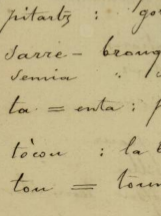 pitarts : go
sarre - broug
semia " s
ta = enta : p
tècou : la b
tou = tour